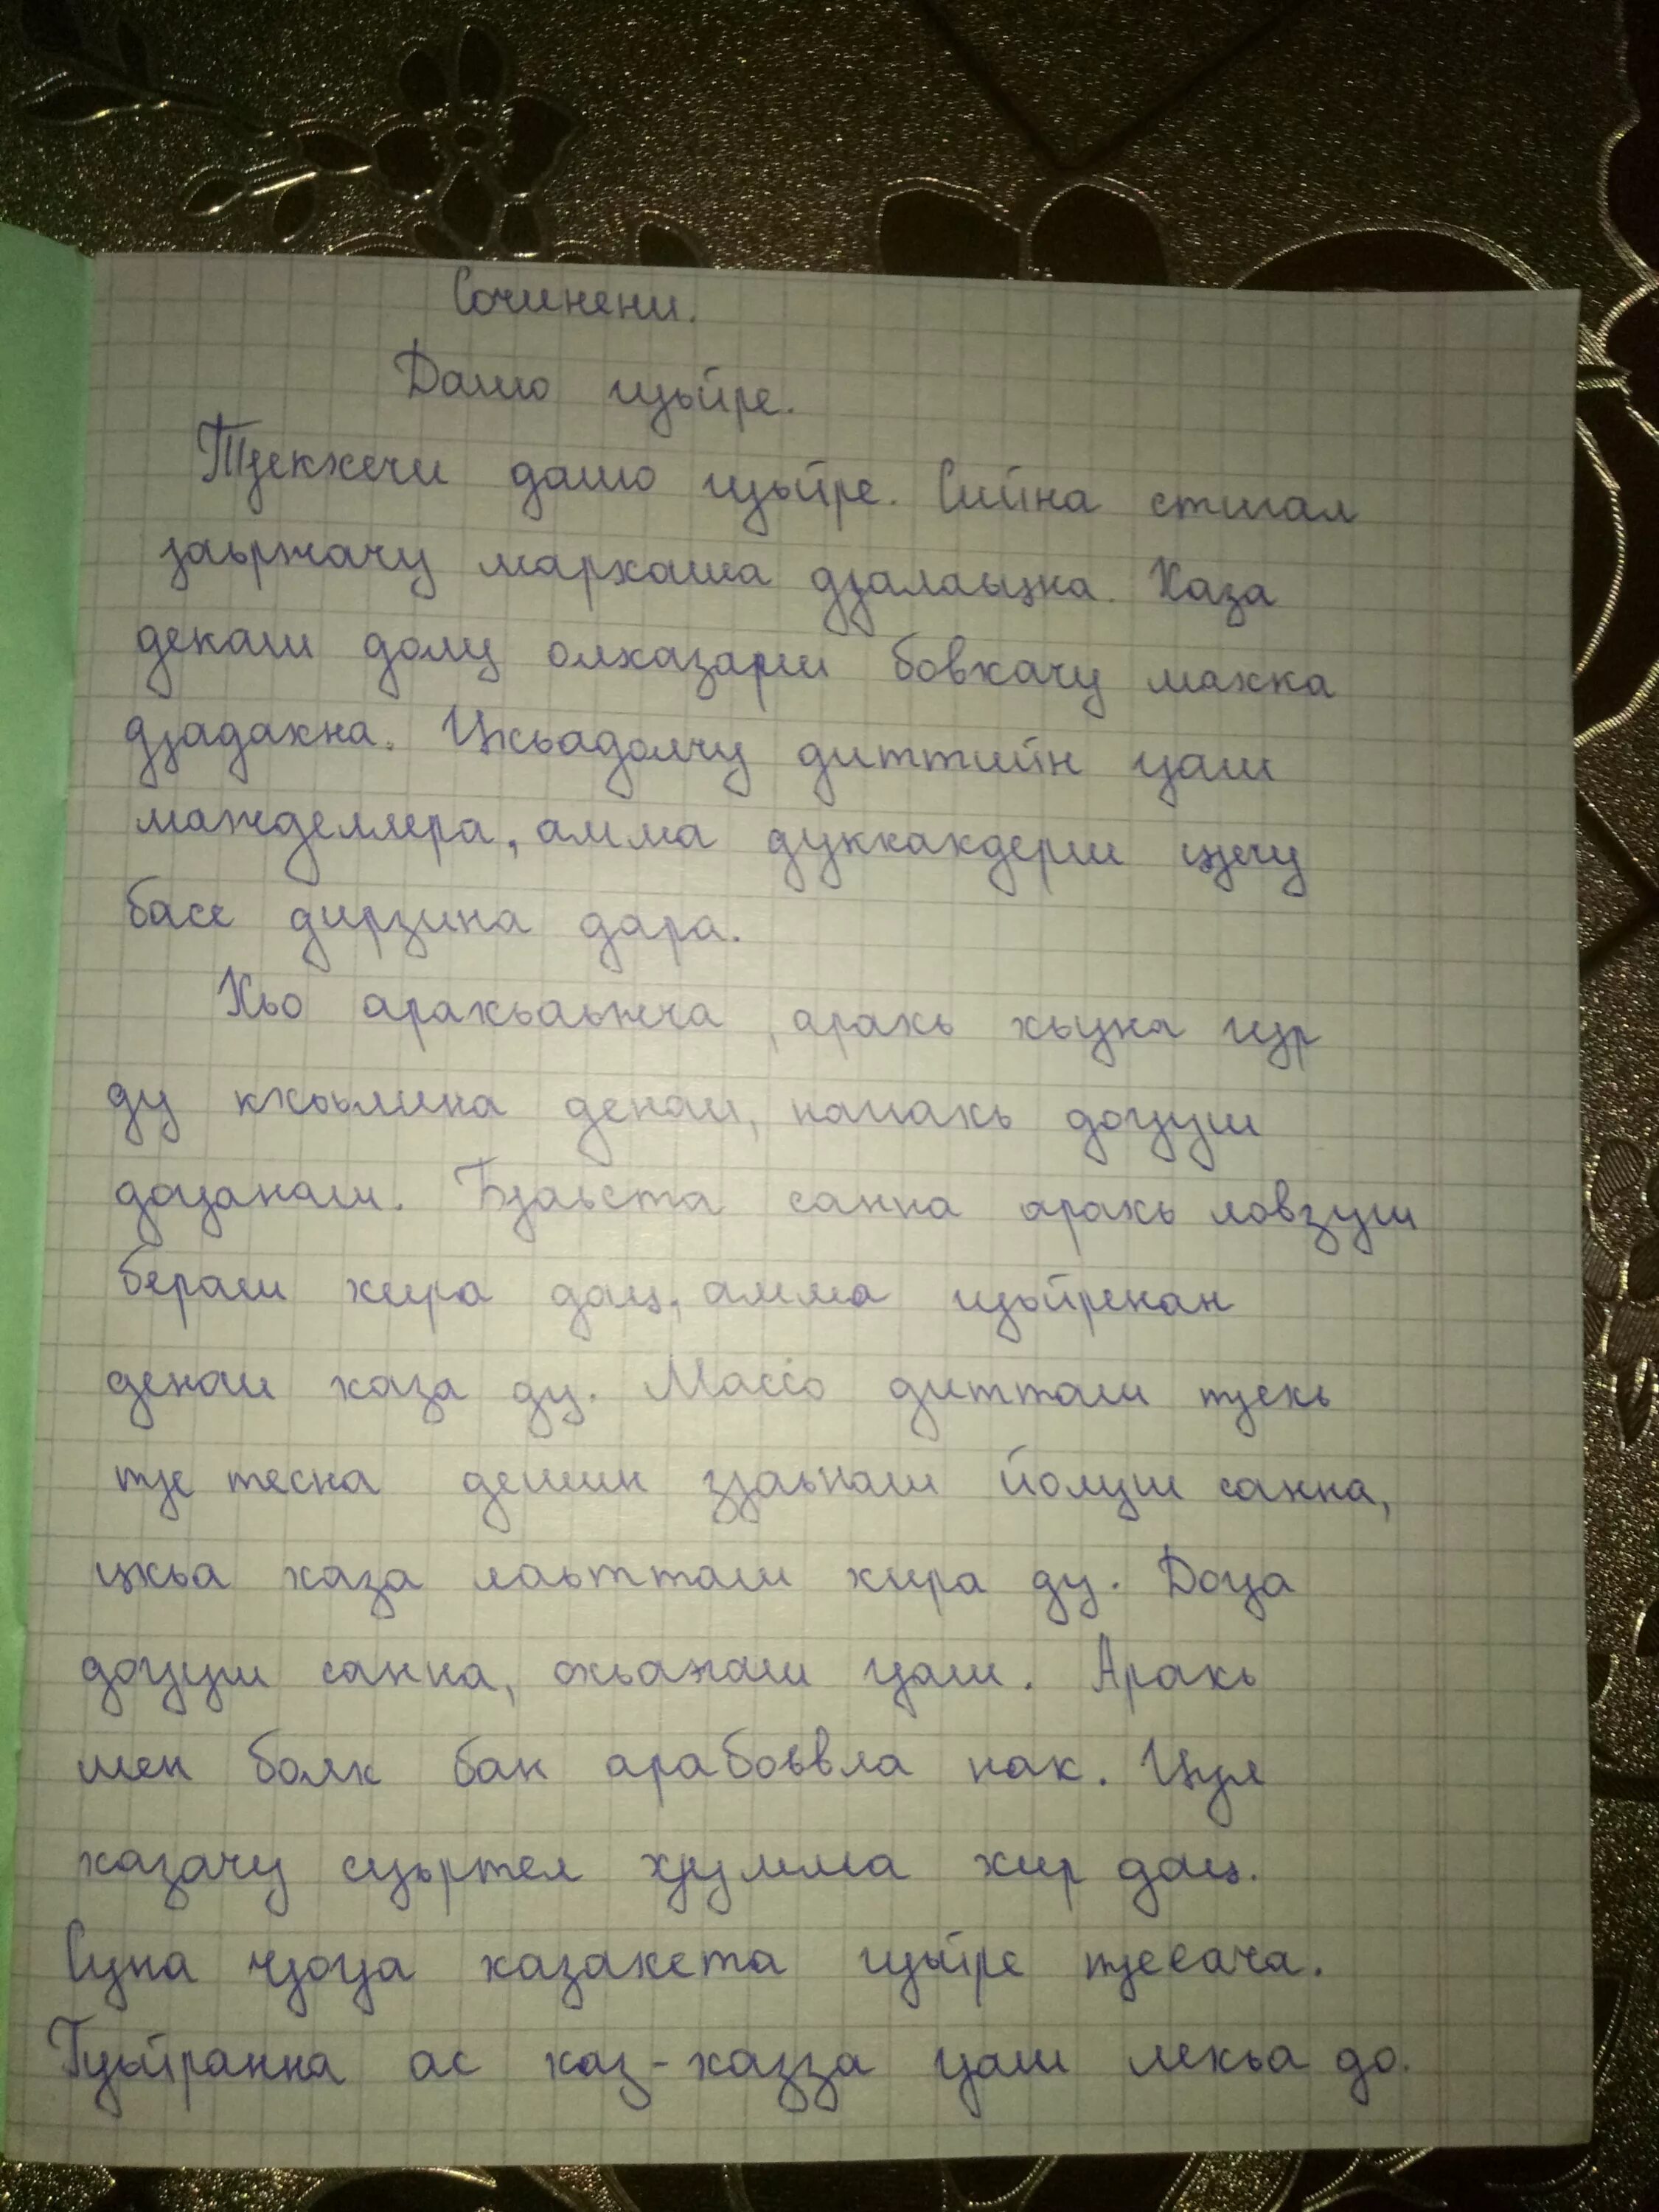 Сочинени.
Дашо гуьйре.
Тӏекхечи дашо гуьйре. Сийна стигал
ӏаьржачу мархаша дӏалаьцна. Хаза
декаш долу олхазарш бовхачу махка
дӏадахна. Цхьадолчу диттийн гӏаш
мажделлера, амма дуккхакдерш цӏечу
басе дирзина дара.
Хьо арахьаьжча, арахь хьуна гур
ду кхоьлина денош, догӏуш
догӏанаш. Бӏаьста санна арахь ловзуш
бераш хира дац, амма гуьйренан
денош хаза ду. Массо дитташ тӏехь
тӏе тесна дешин зӏаьнаш йолуш санна,
цхьа хаза лаьтташ хира ду. Догӏа
догӏуш санна, гӏаш. Арахь
шен болх бан арабоьвла нах. Цул
хазачу суьртел хӏумма хир дац.
Суна чӏогӏа хазахета гуьйре тӏееача.
Гуьйранна ас хаз-хазза гӏаш лехьа до.